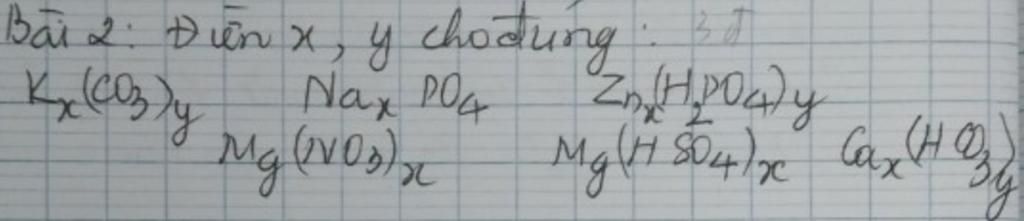 Bài 2: Điền x, y cho đúng: 3đ
Kx(CO3)y Nax PO4 Znx(H2PO4)y
Mg(NO3)x Mg(HSO4)x Cax(HCO3)y